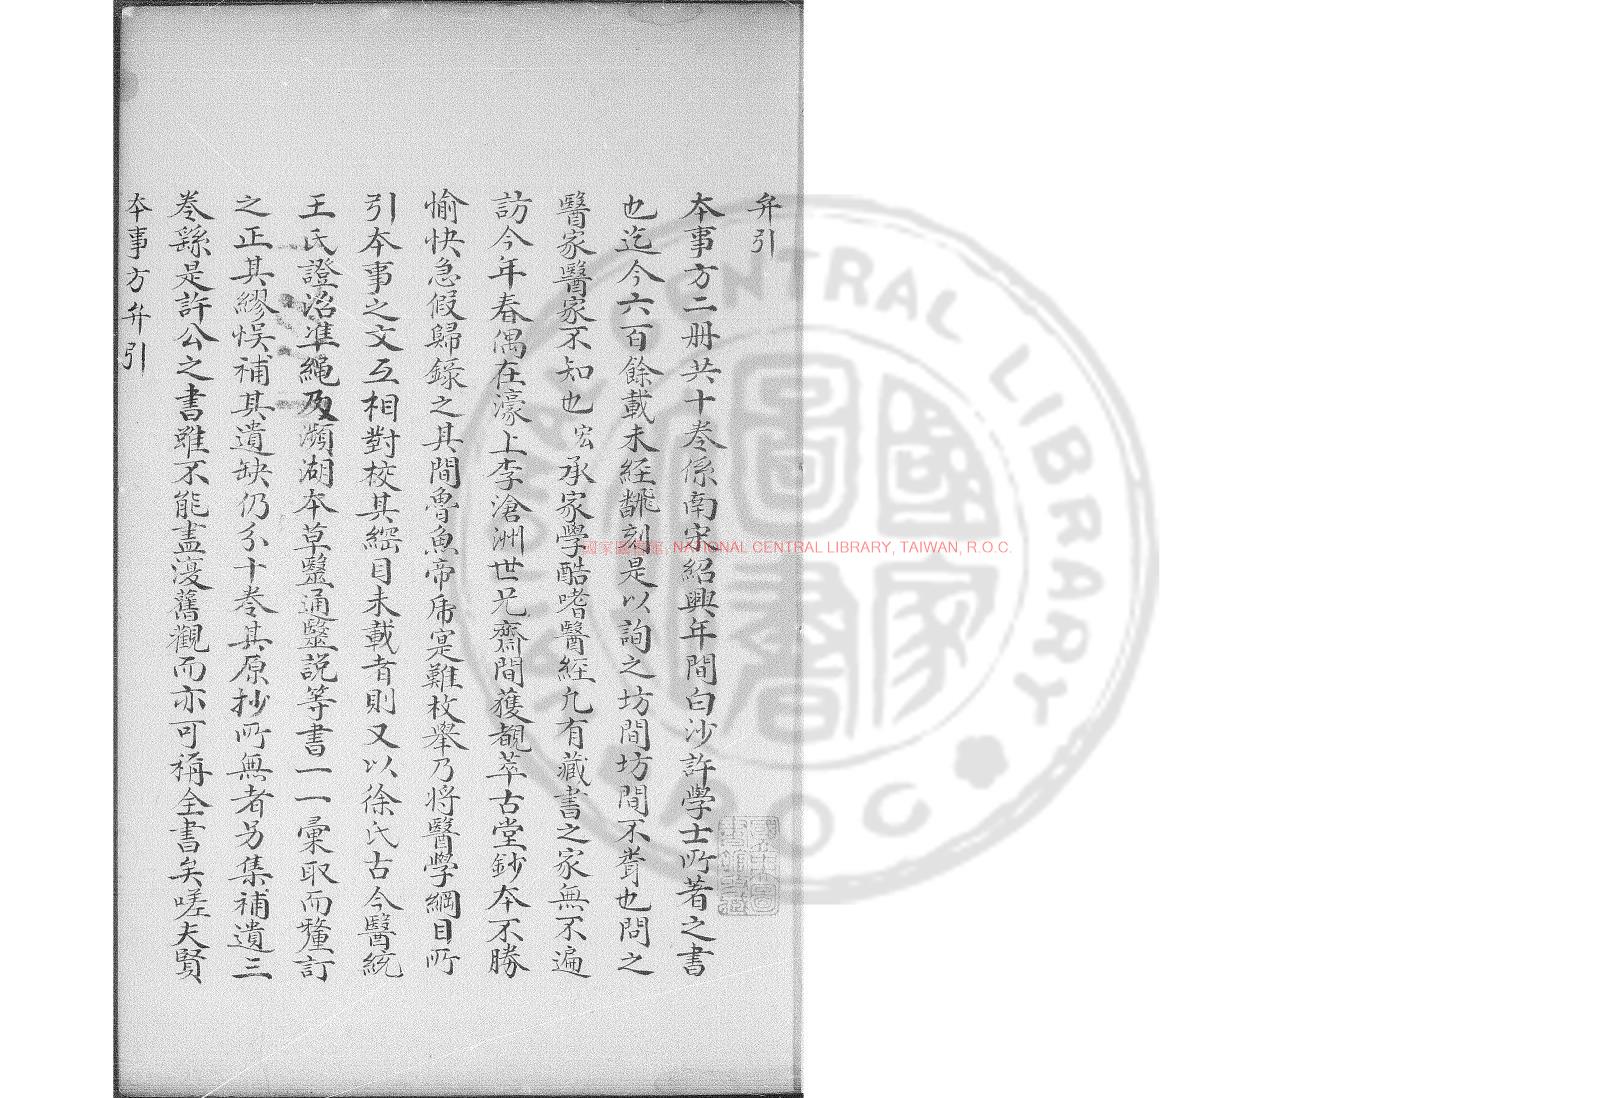 弁引
本事方二册共十卷係南宋紹興年間白沙許學士所著之書
也迄今六百餘載未經翻刻是以詢之坊間坊間不賫也問之
醫家醫家不知也宏承家學酷嗜醫經凡有藏書之家無不遍
訪今年春偶在濠上李滄洲世兄齋間獲覩萃古堂鈔本不勝
愉快急假歸錄之其間魯魚帝虎寔難枚舉乃將醫學綱目所
引本事之文互相對校其綱目未載者則又以徐氏古今醫統
王氏證治準繩及瀕湖本草醫通醫說等書一一彙取而釐訂
之正其繆悞補其遺缺仍分十卷其原抄所無者另集補遺三
卷繇是許公之書雖不能盡復舊觀而亦可稱全書矣嗟夫賢
本事方弁引
國家圖書館, NATIONAL CENTRAL LIBRARY, TAIWAN, R.O.C.
NATIONAL CENTRAL LIBRARY
TAIWAN ROC
國家圖書館